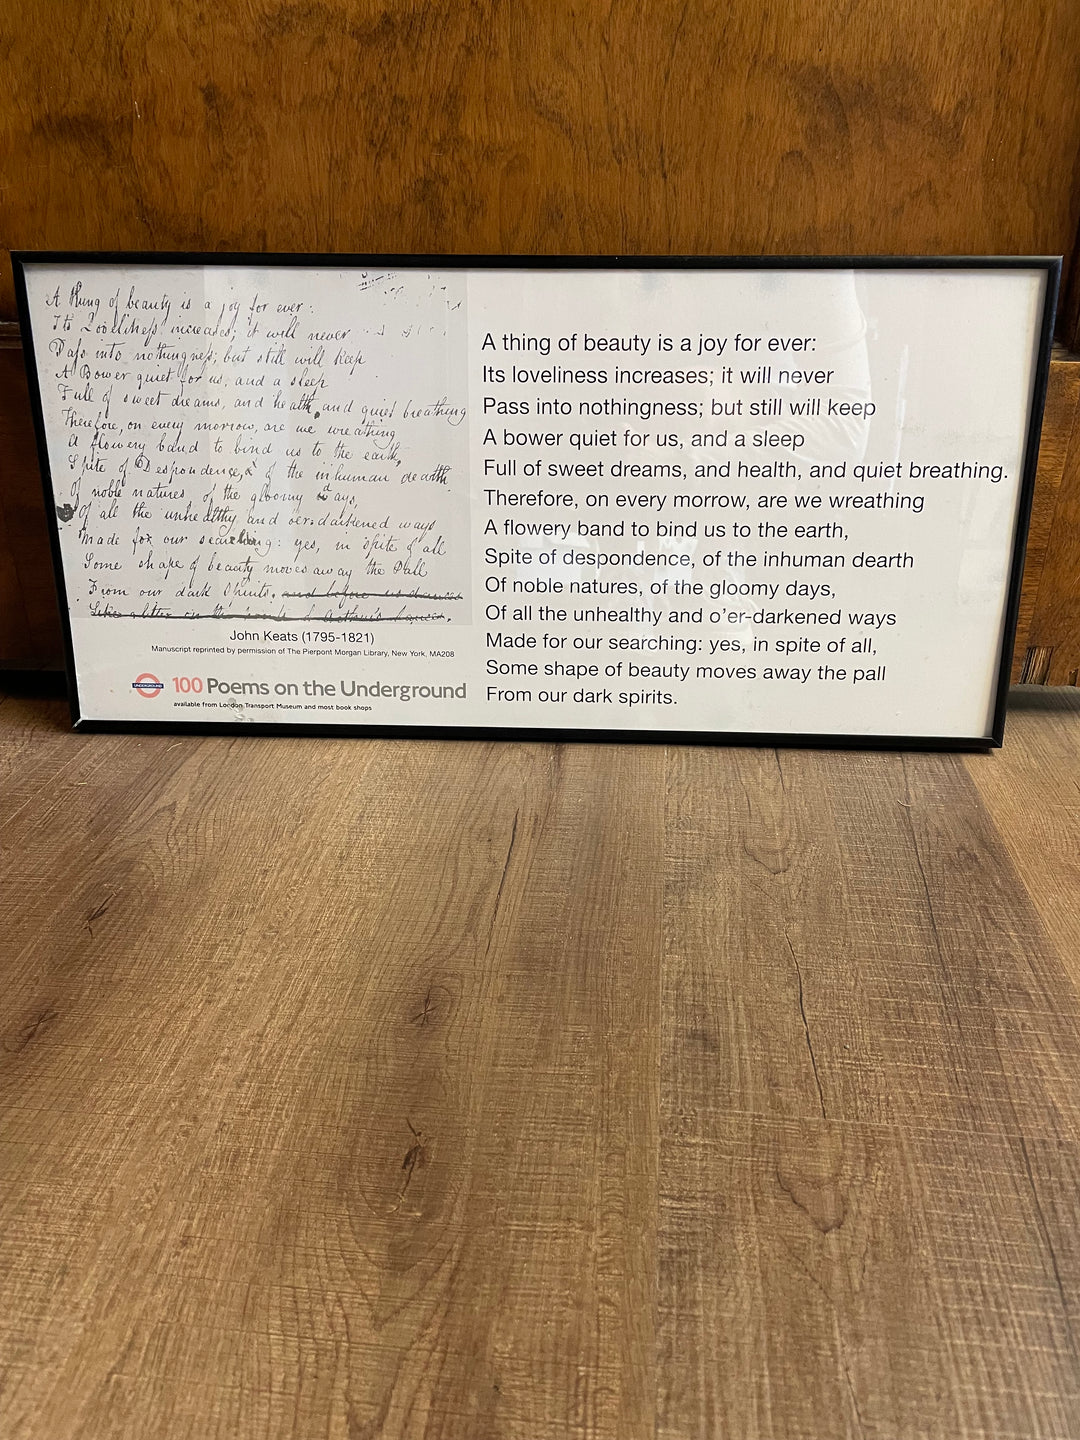 A thing of beauty is a joy for ever:
Its Loveliness increases; it will never
Pass into nothingness; but still will keep
A Bower quiet for us, and a sleep
Full of sweet dreams, and health, and quiet breathing
Therefore, on every morrow, are we wreathing
A flowery band to bind us to the earth,
Spite of Despondence, of the inhuman dearth
Of noble natures of the gloomy days,
Of all the unhealthy and oer-darkened ways
Made for our searching: yes, in spite of all
Some shape of beauty moves away the Pall
From our dark Spirits. and before us dances
Like glitter on the
John Keats (1795-1821)
Manuscript reprinted by permission of The Pierpont Morgan Library, New York, MA208
UNDERGROUND 100 Poems on the Underground
available from London Transport Museum and most book shops
A thing of beauty is a joy for ever:
Its loveliness increases; it will never
Pass into nothingness; but still will keep
A bower quiet for us, and a sleep
Full of sweet dreams, and health, and quiet breathing.
Therefore, on every morrow, are we wreathing
A flowery band to bind us to the earth,
Spite of despondence, of the inhuman dearth
Of noble natures, of the gloomy days,
Of all the unhealthy and o'er-darkened ways
Made for our searching: yes, in spite of all,
Some shape of beauty moves away the pall
From our dark spirits.